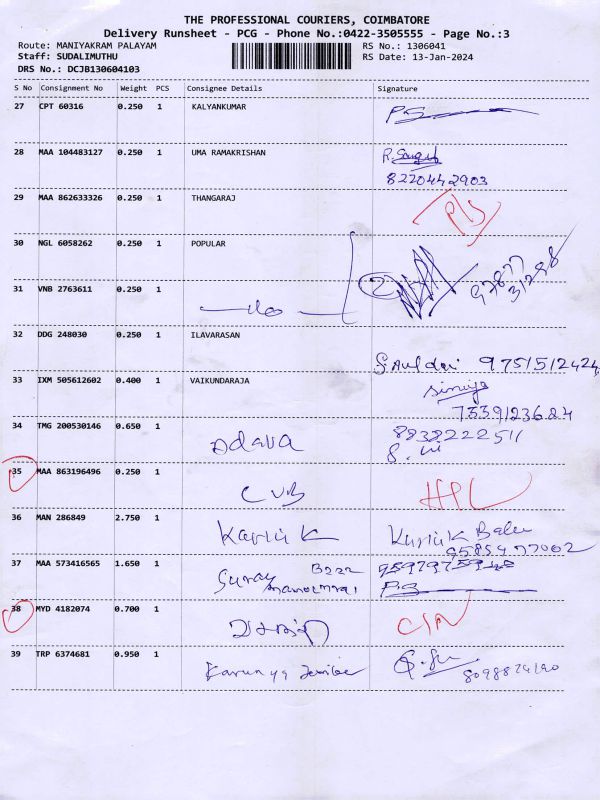 THE PROFESSIONAL COURIERS, COIMBATORE
Delivery Runsheet - PCG - Phone No.:0422-3505555 - Page No.:3
Route: MANIYAKRAM PALAYAM RS No.: 1306041
Staff: SUDALIMUTHU RS Date: 13-Jan-2024
DRS No.: DCJB130604103
S No Consignment No Weight PCS Consignee Details Signature
27 CPT 60316 0.250 1 KALYANKUMAR
28 MAA 104483127 0.250 1 UMA RAMAKRISHAN
8220442903
29 MAA 862633326 0.250 1 THANGARAJ
30 NGL 6058262 0.250 1 POPULAR
2
31 VNB 2763611 0.250 1
32 DDG 248030 0.250 1 ILAVARASAN
9751512424
33 IXM 505612602 0.400 1 VAIKUNDARAJA
7339123684
34 TMG 200530146 0.650 1
8838222511
35 MAA 863196496 0.250 1 CUB
36 MAN 286849 2.750 1 Karthik
9585977002
37 MAA 573416565 1.650 1
38 MYD 4182074 0.700 1
39 TRP 6374681 0.950 1 Karunya